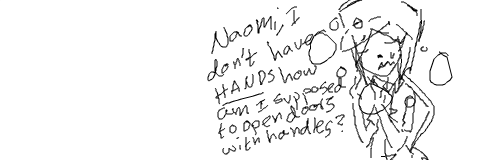 Naomi, I
don't have
HANDS how
am I supposed
to open doors
with handles?